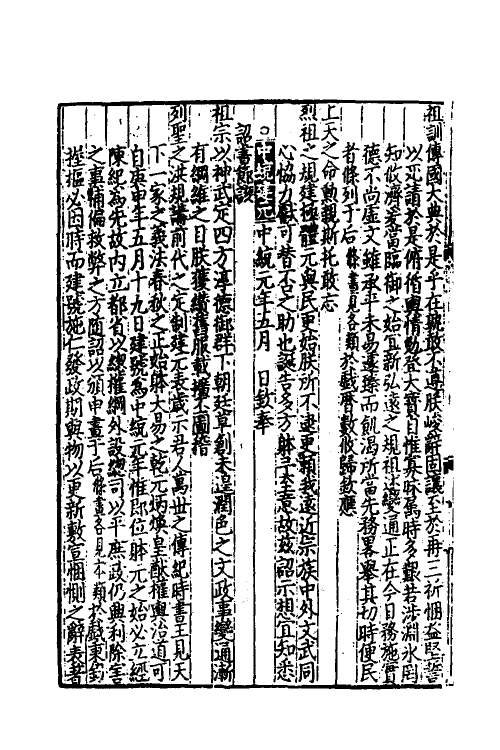 祖訓傳國大典於是乎在孰敢不遵朕峻辭固讓至於再三祈悃益堅誓
以死請於是俯徇輿情勉登大寶自惟寡昧属時多艱若涉淵氷罔
知攸濟爰當臨御之始宜新弘遠之規祖述變通正在今日務施實
德不尚虛文雖承平未易遽臻而飢渴所當先務畧舉其切時便民
者條列于后條畫見各類於戲曆數攸歸欽應
上天之命勲親斯托敢忘
烈祖之規建極體元與民更始朕所不逮更賴我遠近宗族中外文武同
心協力獻可替否之助也誕告多方躰予至意故玆詔示想宜知悉
中統建元中統元年五月　日欽奉
詔書節該
祖宗以神武定四方淳德御群下朝廷草創未遑潤色之文政事變通漸
有綱維之目朕獲纉舊服載擴丕圖稽
列聖之洪規講前代之定制建元表歲示君人萬世之傳紀時書王見天
下一家之義法春秋之正始躰大易之乾元炳煥皇猷權輿治道可
自庚申年五月十九日建號為中統元年惟即位躰元之始必立經
陳紀為先故内立都省以總權綱外設總司以平庶政仍興利除害
之事補偏救弊之方随詔以頒申畫于后條畫各見本類於戲秉籙
握樞必因時而建號施仁發政期與物以更新敷宣悃惻之辭表著